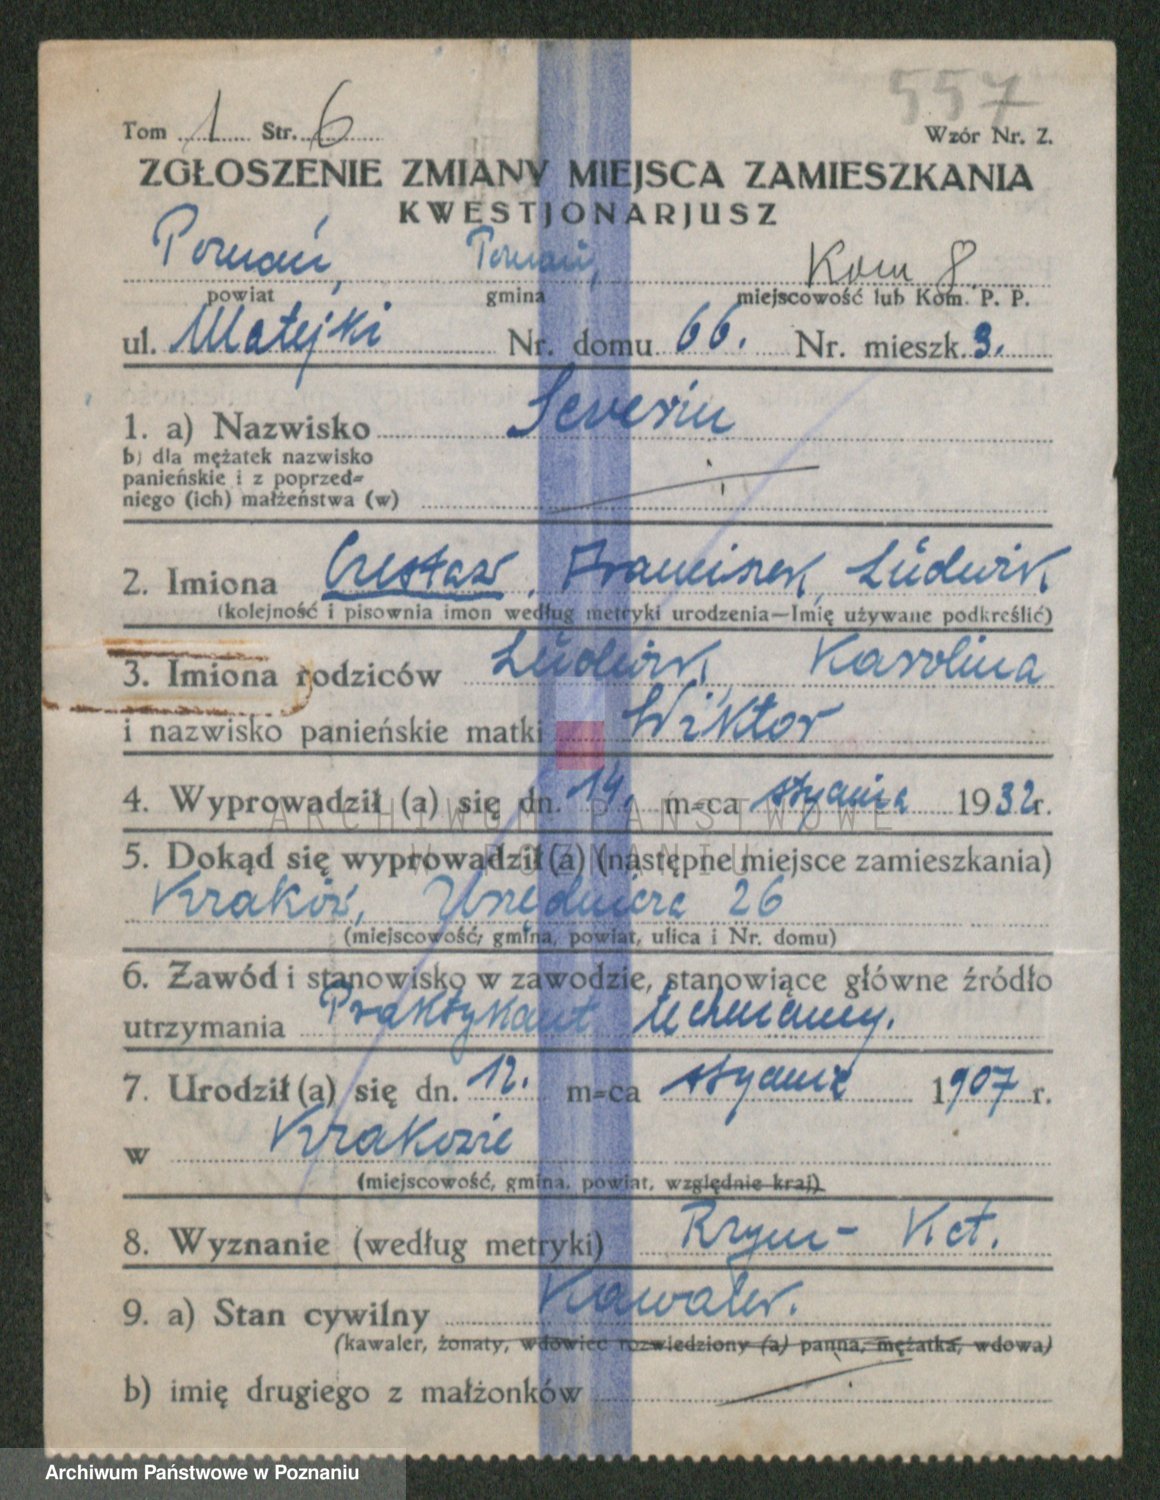 557
Tom 1 Str. 6 Wzór Nr. Z.
ZGŁOSZENIE ZMIANY MIEJSCA ZAMIESZKANIA
KWESTJONARJUSZ
Poznań, Poznań, Kom 8
powiat gmina miejscowość lub Kom. P. P.
ul. Matejki Nr. domu 66. Nr. mieszk. 3.
1. a) Nazwisko Severin
b) dla mężatek nazwisko
panieńskie i z poprzed=
niego (ich) małżeństwa (w)
2. Imiona Czesław, Franciszek, Ludwik
(kolejność i pisownia imon według metryki urodzenia—Imię używane podkreślić)
3. Imiona rodziców Ludwik, Karolina
i nazwisko panieńskie matki Wiktor
4. Wyprowadził (a) się dn. 14. m=ca stycznia 1932 r.
ARCHIWUM PAŃSTWOWE
W POZNANIU
5. Dokąd się wyprowadził (a) (następne miejsce zamieszkania)
Kraków, Urzędnicza 26
(miejscowość, gmina, powiat, ulica i Nr. domu)
6. Zawód i stanowisko w zawodzie, stanowiące główne źródło
utrzymania Praktykant techniczny.
7. Urodził (a) się dn. 12. m=ca stycznia 1907 r.
w Krakowie
(miejscowość, gmina, powiat, względnie kraj)
8. Wyznanie (według metryki) Rzym- Kat.
9. a) Stan cywilny Kawaler.
(kawaler, żonaty, wdowiec rozwiedziony (a) panna, mężatka, wdowa)
b) imię drugiego z małżonków
Archiwum Państwowe w Poznaniu